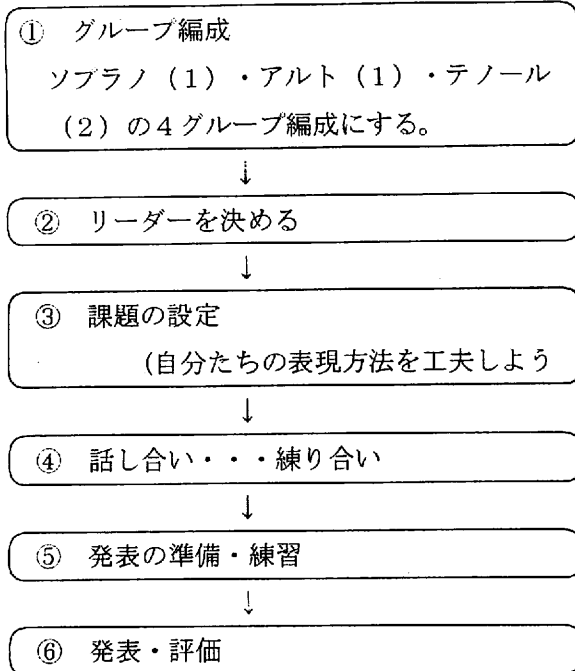 ① グループ編成
ソプラノ（1）・アルト（1）・テノール
（2）の4グループ編成にする。
↓
② リーダーを決める
↓
③ 課題の設定
(自分たちの表現方法を工夫しよう
↓
④ 話し合い・・・練り合い
↓
⑤ 発表の準備・練習
↓
⑥ 発表・評価